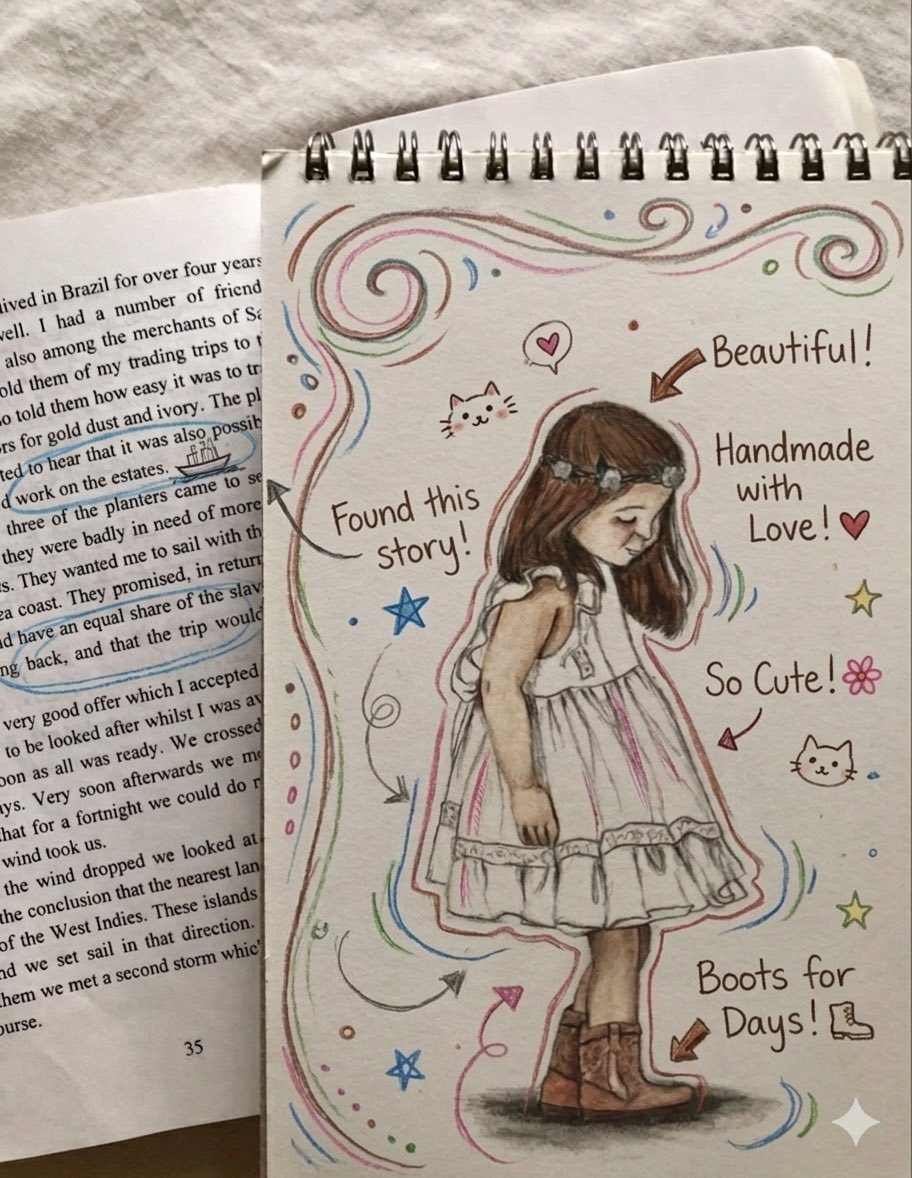 lived in Brazil for over four years
well. I had a number of friend
also among the merchants of Sa
old them of my trading trips to t
so told them how easy it was to tr
rs for gold dust and ivory. The pl
ted to hear that it was also possib
d work on the estates.
three of the planters came to se
they were badly in need of more
s. They wanted me to sail with th
ea coast. They promised, in return
ld have an equal share of the slav
ng back, and that the trip would
very good offer which I accepted
to be looked after whilst I was av
oon as all was ready. We crossed
ays. Very soon afterwards we me
hat for a fortnight we could do n
wind took us.
the wind dropped we looked at
the conclusion that the nearest lan
of the West Indies. These islands
nd we set sail in that direction.
hem we met a second storm whic
ourse.
35
Beautiful!
Handmade
with
Love!
Found this
story!
So Cute!
Boots for
Days!